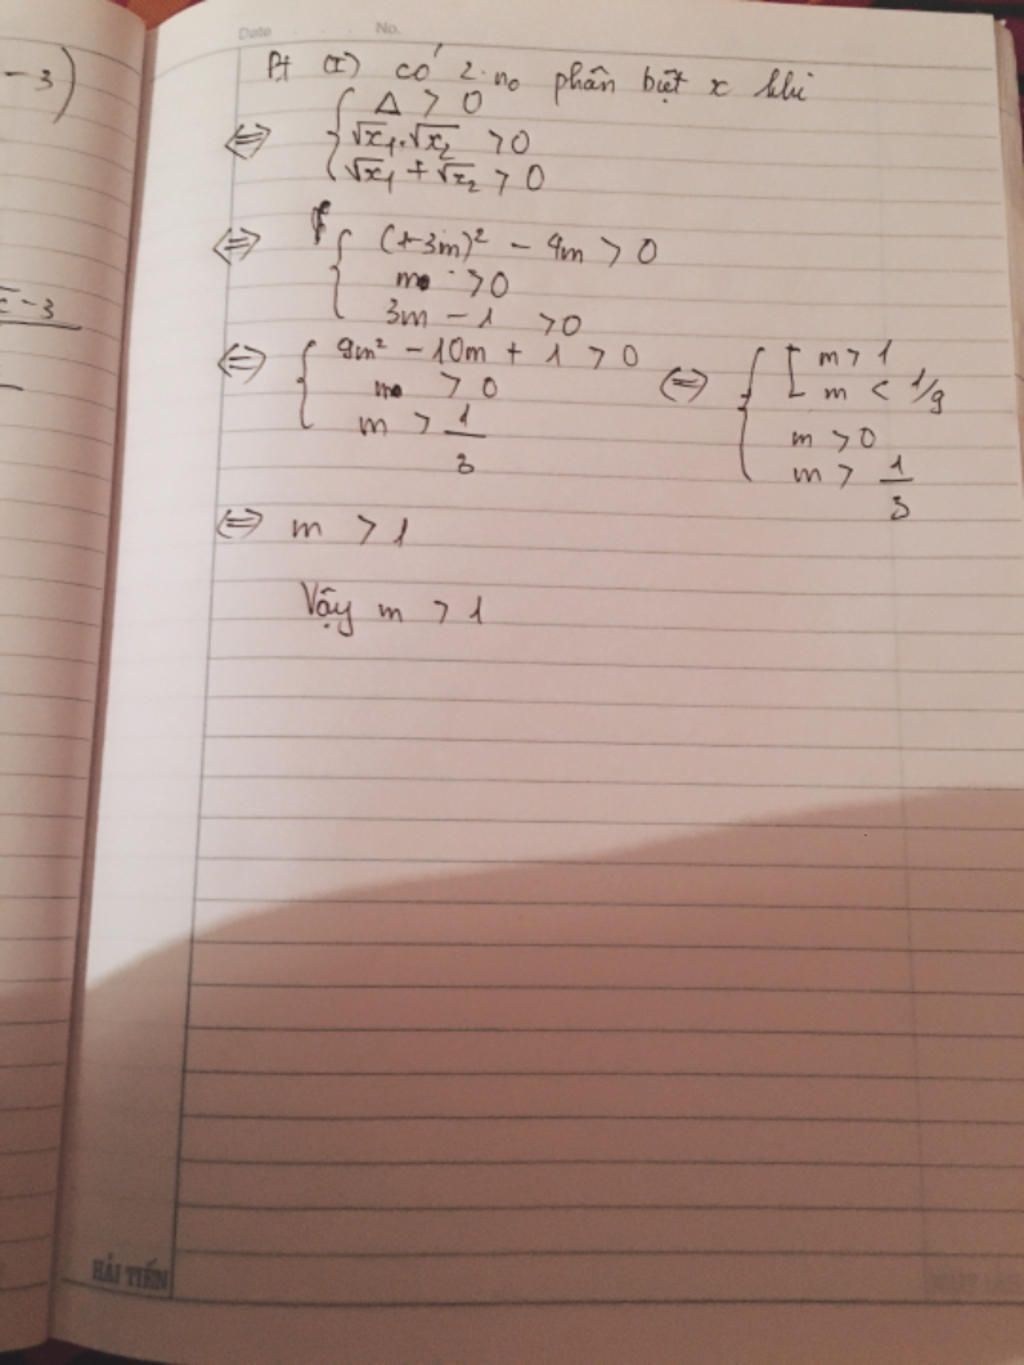 Date . . . No.
-3)
Pt (I) có 2 no phân biệt x khi
⇔ { Δ > 0
√x₁.√x₂ > 0
√x₁ + √x₂ > 0
⇔ { (1-3m)² - 4m > 0
m > 0
3m - 1 > 0
-3
⇔ { 9m² - 10m + 1 > 0
m > 0
m > 1/3
⇔ { [ m > 1
m < 1/9
m > 0
m > 1/3
⇔ m > 1
Vậy m > 1
HẢI TIẾN